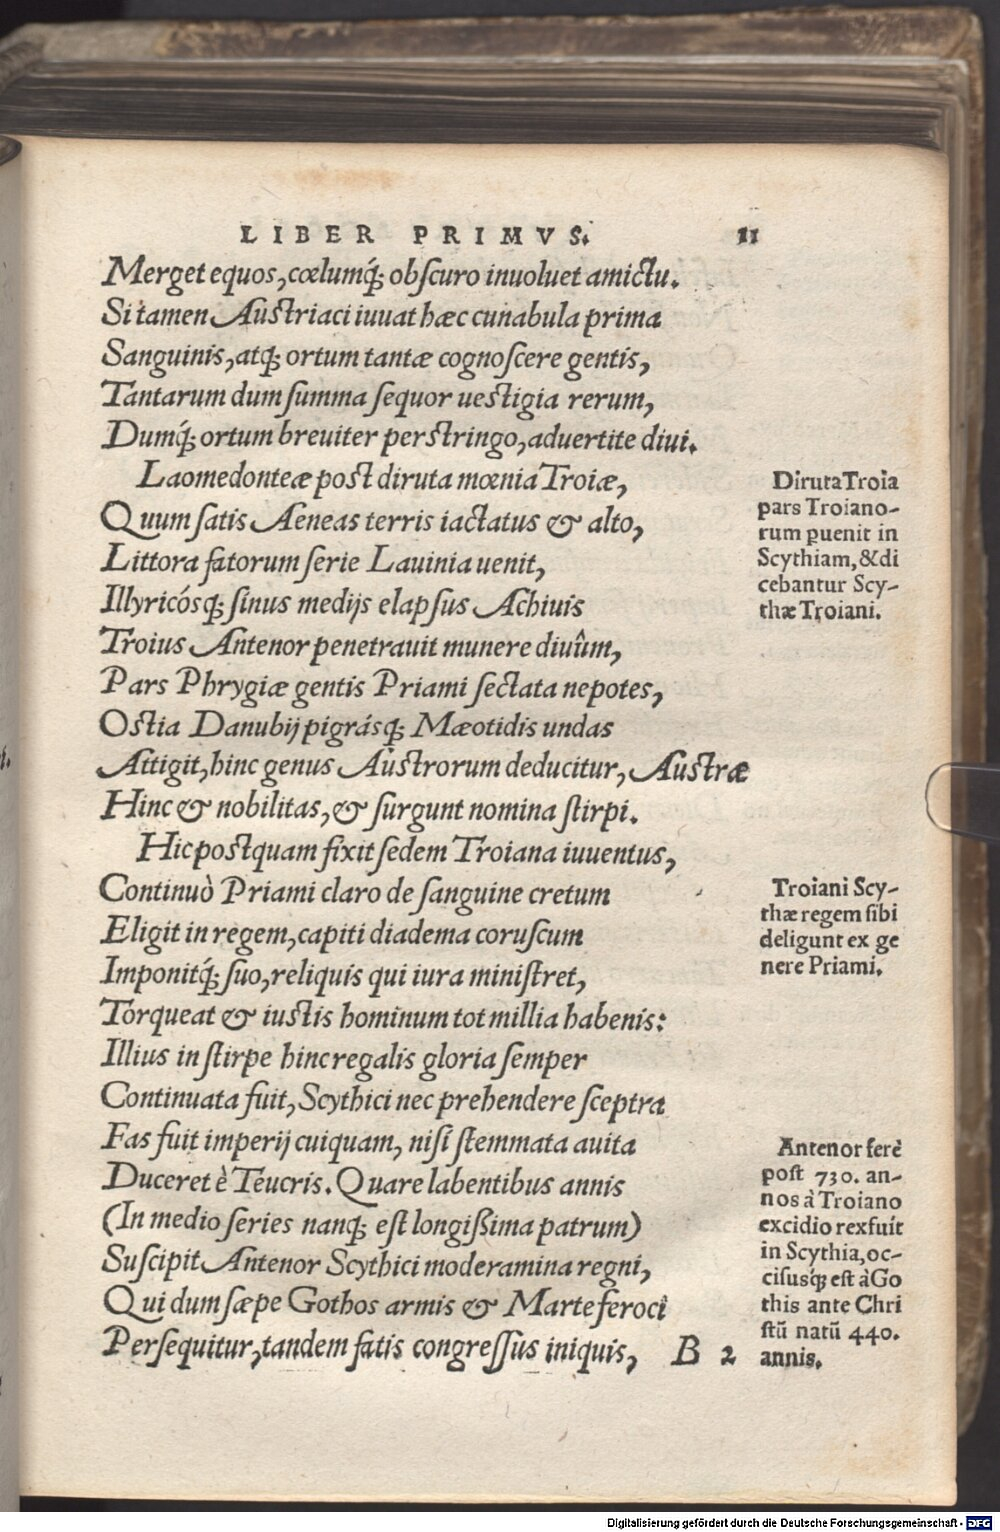 LIBER PRIMVS. 11
Merget equos, cœlumq́; obscuro inuoluet amictu.
Si tamen Austriaci iuuat hæc cunabula prima
Sanguinis, atq; ortum tantæ cognoscere gentis,
Tantarum dum summa sequor uestigia rerum,
Dumq́; ortum breuiter perstringo, aduertite diui.
Laomedonteæ post diruta mœnia Troiæ,
Quum satis Aeneas terris iactatus & alto,
Littora fatorum serie Lauinia uenit,
Illyricósq; sinus medijs elapsus Achiuis
Troius Antenor penetrauit munere diuûm,
Pars Phrygiæ gentis Priami sectata nepotes,
Ostia Danubij pigrásq; Mæotidis undas
Attigit, hinc genus Austrorum deducitur, Austræ
Hinc & nobilitas, & surgunt nomina stirpi.
Hic postquam fixit sedem Troiana iuuentus,
Continuò Priami claro de sanguine cretum
Eligit in regem, capiti diadema coruscum
Imponitq́; suo, reliquis qui iura ministret,
Torqueat & iustis hominum tot millia habenis:
Illius in stirpe hinc regalis gloria semper
Continuata fuit, Scythici nec prehendere sceptra
Fas fuit imperij cuiquam, nisi stemmata auita
Duceret è Teucris. Quare labentibus annis
(In medio series nanq; est longißima patrum)
Suscipit Antenor Scythici moderamina regni,
Qui dum sæpe Gothos armis & Marte feroci
Persequitur, tandem fatis congressus iniquis,
B 2
Diruta Troia
pars Troiano-
rum puenit in
Scythiam, & di
cebantur Scy-
thæ Troiani.
Troiani Scy-
thæ regem sibi
deligunt ex ge
nere Priami.
Antenor ferè
post 730. an-
nos à Troiano
excidio rex fuit
in Scythia, oc-
cisusq́; est à Go
this ante Chri
stū natū 440.
annis.
Digitalisierung gefördert durch die Deutsche Forschungsgemeinschaft - DFG